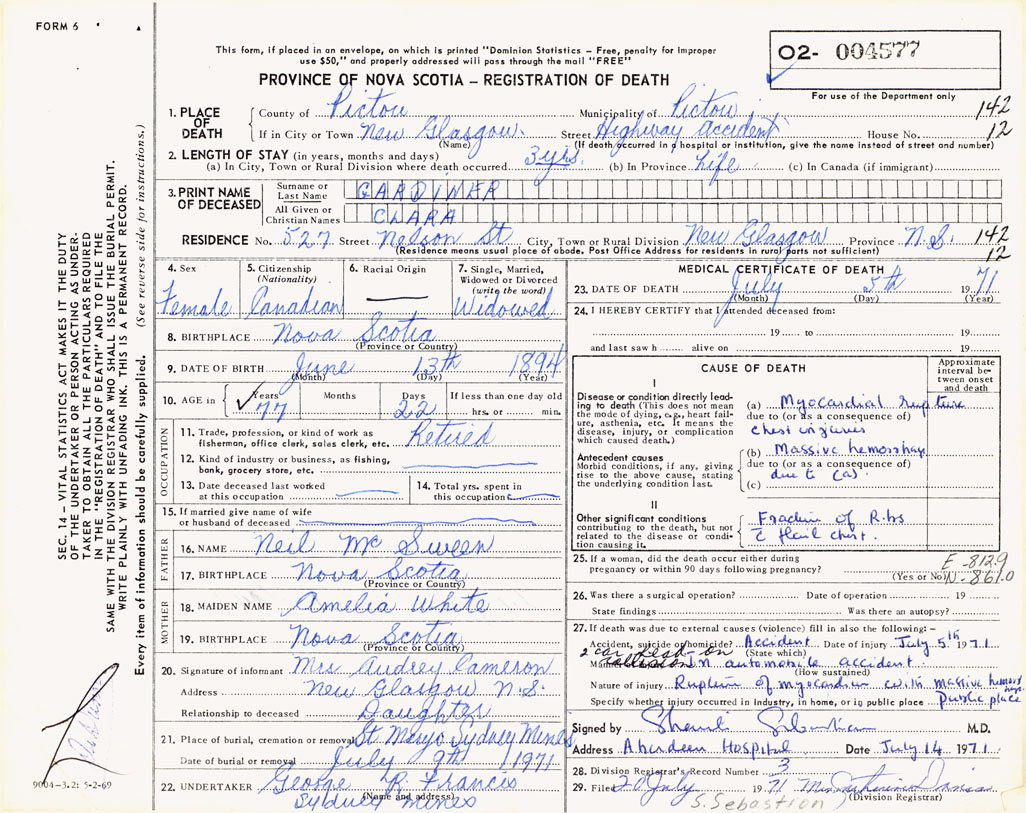 FORM 6
This form, if placed in an envelope, on which is printed "Dominion Statistics – Free, penalty for improper
use $50," and properly addressed will pass through the mail "FREE"
PROVINCE OF NOVA SCOTIA – REGISTRATION OF DEATH
02- 004577
For use of the Department only
1. PLACE OF DEATH
County of Pictou Municipality of Pictou 142
If in City or Town New Glasgow. Street Highway Accident House No. 12
(Name) (If death occurred in a hospital or institution, give the name instead of street and number)
2. LENGTH OF STAY (in years, months and days)
(a) In City, Town or Rural Division where death occurred 3 yrs. (b) In Province Life (c) In Canada (if immigrant)
3. PRINT NAME OF DECEASED
Surname or Last Name GARDINER
All Given or Christian Names CLARA
RESIDENCE No. 527 Street Nelson St City, Town or Rural Division New Glasgow Province N.S. 142
(Residence means usual place of abode. Post Office Address for residents in rural parts not sufficient) 12
4. Sex Female
5. Citizenship (Nationality) Canadian
6. Racial Origin
7. Single, Married, Widowed or Divorced (write the word) Widowed
8. BIRTHPLACE Nova Scotia
(Province or Country)
9. DATE OF BIRTH June 13th 1894
(Month) (Day) (Year)
10. AGE in Years 77 Months Days 22 If less than one day old hrs. or min.
OCCUPATION
11. Trade, profession, or kind of work as fisherman, office clerk, sales clerk, etc. Retired
12. Kind of industry or business, as fishing, bank, grocery store, etc.
13. Date deceased last worked at this occupation
14. Total yrs. spent in this occupation
15. If married give name of wife or husband of deceased
FATHER
16. NAME Neil Mc Sween
17. BIRTHPLACE Nova Scotia
(Province or Country)
MOTHER
18. MAIDEN NAME Amelia White
19. BIRTHPLACE Nova Scotia
(Province or Country)
20. Signature of informant Mrs Audrey Cameron
Address New Glasgow N.S.
Relationship to deceased Daughter
21. Place of burial, cremation or removal St Marys Sydney Mines
Date of burial or removal July 9th 1971
22. UNDERTAKER George R. Francis
(Name and address)
Sydney Mines
MEDICAL CERTIFICATE OF DEATH
23. DATE OF DEATH July 5th 1971
(Month) (Day) (Year)
24. I HEREBY CERTIFY that I attended deceased from:
19 to 19
and last saw h alive on 19
CAUSE OF DEATH
Approximate interval between onset and death
I
Disease or condition directly leading to death (This does not mean the mode of dying, e.g., heart failure, asthenia, etc. It means the disease, injury, or complication which caused death.)
(a) Myocardial rupture
due to (or as a consequence of)
chest injuries
Antecedent causes
Morbid conditions, if any, giving rise to the above cause, stating the underlying condition last.
(b) Massive hemorrhage
due to (or as a consequence of)
due to (a)
(c)
II
Other significant conditions contributing to the death, but not related to the disease or condition causing it.
Fracture of Ribs
c flail chest.
25. If a woman, did the death occur either during pregnancy or within 90 days following pregnancy? (Yes or No)
E-812.9
N-861.0
26. Was there a surgical operation? Date of operation 19
State findings Was there an autopsy?
27. If death was due to external causes (violence) fill in also the following:–
Accident, suicide or homicide? Accident Date of injury July 5th 1971
(State which)
2 car head-on
collision in automobile accident
(How sustained)
Nature of injury Rupture of myocardium with massive hemorrhage
Specify whether injury occurred in industry, in home, or in public place public place
Signed by M.D.
Address Aberdeen Hospital Date July 14 1971
28. Division Registrar's Record Number 3
29. Filed 20 July 1971
(Division Registrar)
S. Sebastion
SEC. 14 – VITAL STATISTICS ACT MAKES IT THE DUTY
OF THE UNDERTAKER OR PERSON ACTING AS UNDER-
TAKER TO OBTAIN ALL THE PARTICULARS REQUIRED
IN THE "REGISTRATION OF DEATH" AND TO FILE THE
SAME WITH THE DIVISION REGISTRAR WHO SHALL ISSUE THE BURIAL PERMIT.
WRITE PLAINLY WITH UNFADING INK. THIS IS A PERMANENT RECORD.
Every item of information should be carefully supplied. (See reverse side for instructions.)
9004-3.2: 5-2-69